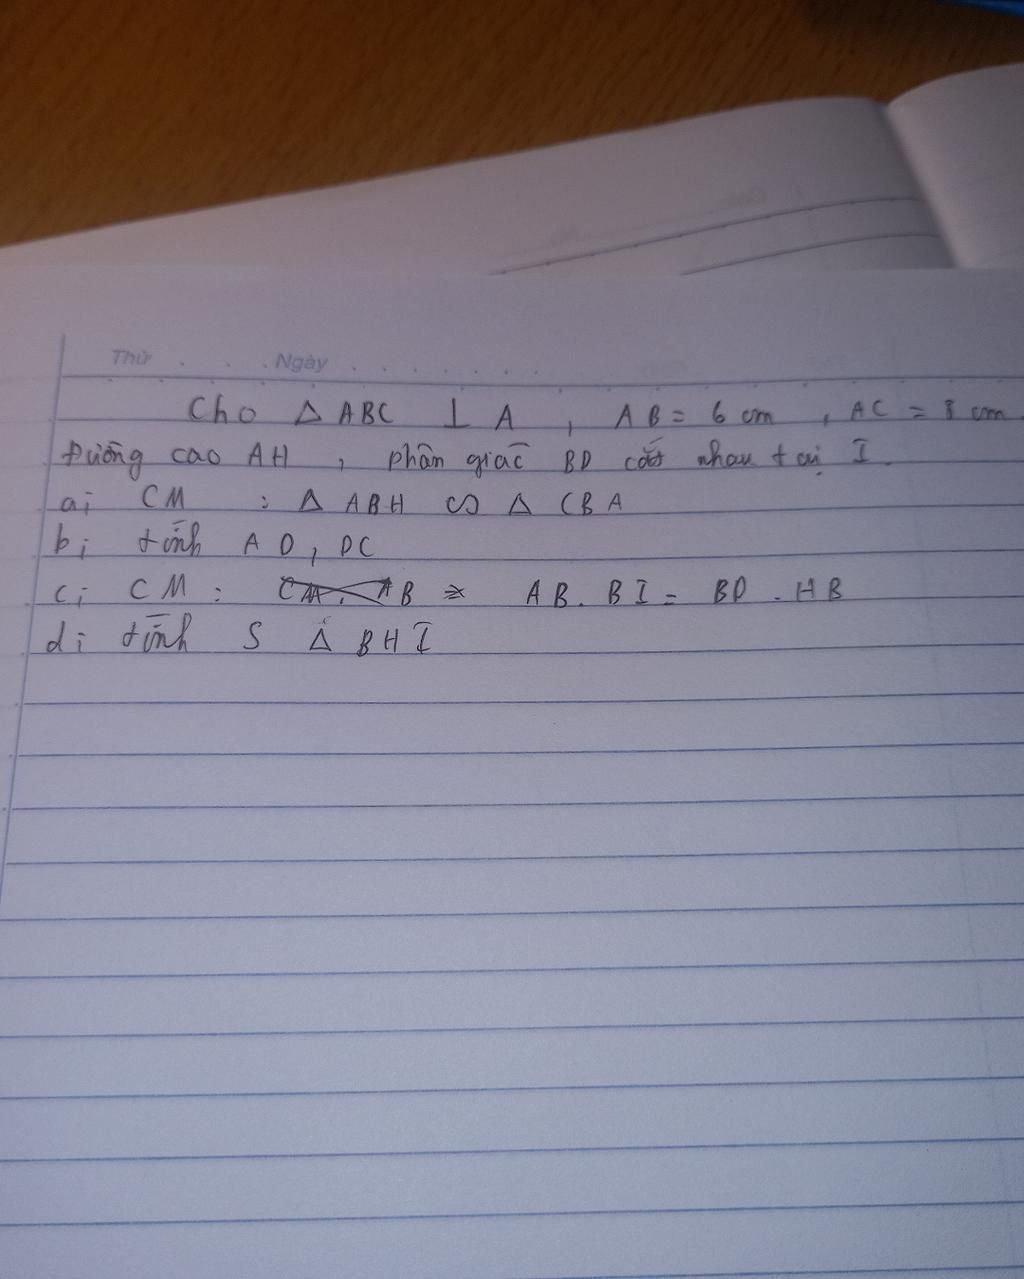 Thứ . . . Ngày . . . . . . .
Cho △ ABC ⊥ A , AB = 6 cm , AC = 8 cm .
Đường cao AH , phân giác BD cắt nhau tại I .
a; CM : △ ABH ∽ △ CBA
b; tính AD, DC
c; CM : AB . BI = BD . HB
d; tính S △ BHI